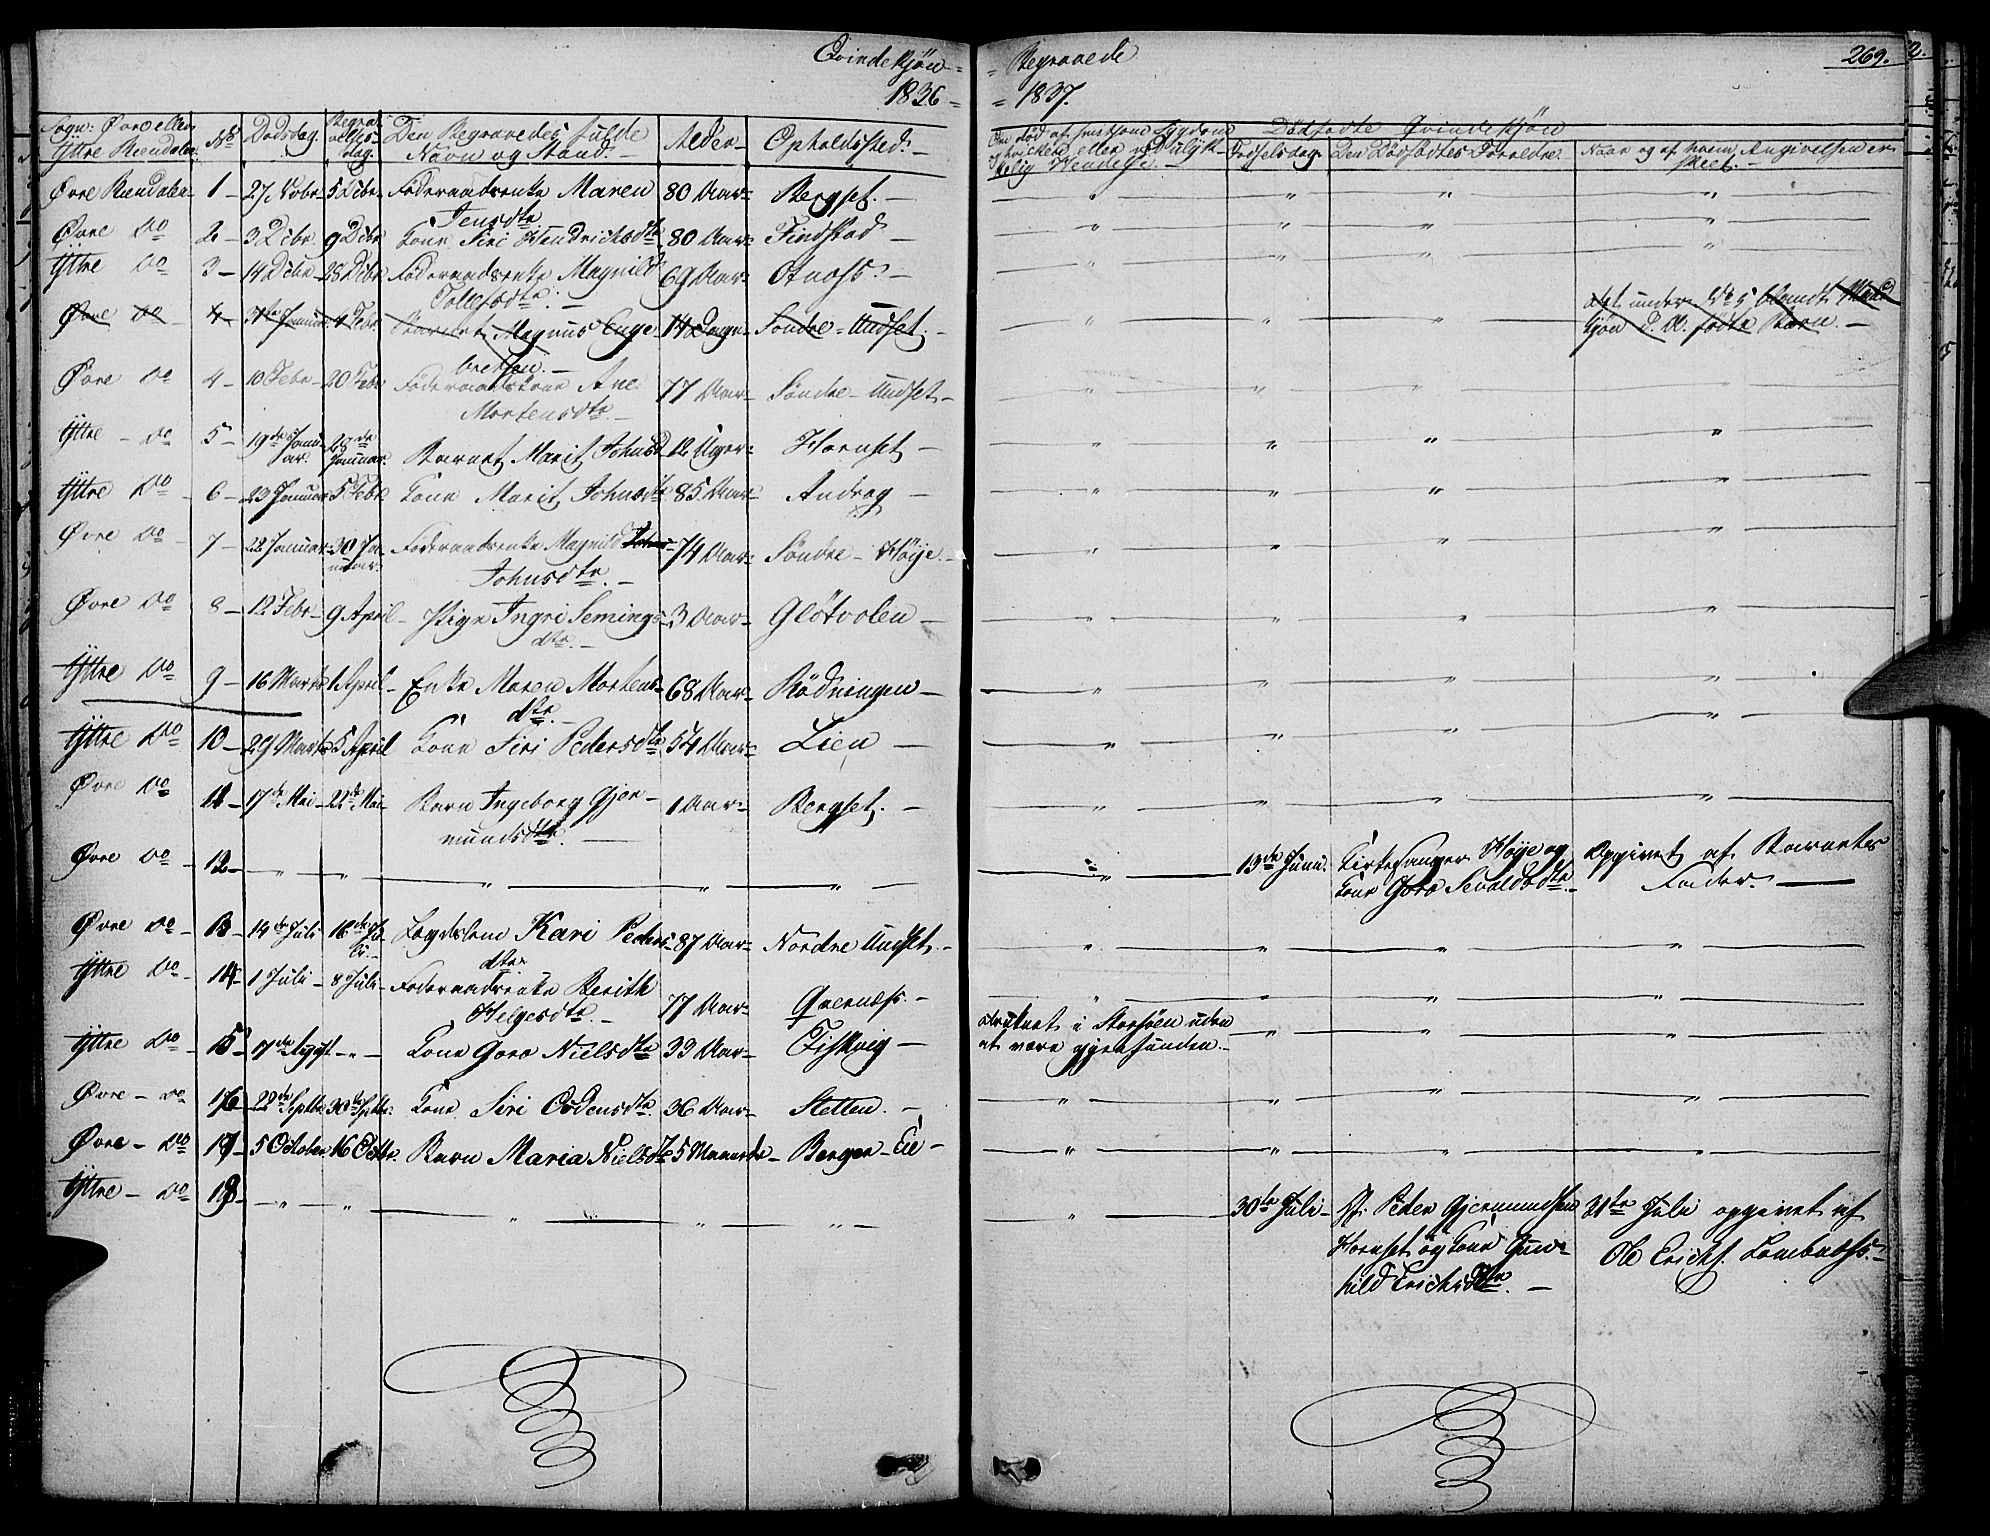 Qvindekjøn - - Begravede 269.
1836 - - 1837.
Sogn: Øvre eller Ytre Rendalen. No Dødsdag. Begravelses Dag. Den Begravedes fulde Navn og Stand. Alder Opholdssted. Om død af smitsom Sygdom og hvilken eller ved ulykkelig Hendelse. Dødfødte Qvindekjøn
Fødselsdag. Den Dødfødtes Forældre. Naar og af hvem Angivelsen er skeet.
Øvre Rendalen 1 27 Novbr 5 Decbr Føderaadsenke Maren Jensdtr 80 Aar Bergset.
Øvre Do 2 3 Decbr. 9 Decbr Kone Siri Hendrichsdtr 80 Aar Findstad
Yttre Do 3 14 Decbr 28 Decbr Føderaadsenke Magnild Tollefsdtr. 69 Aar Otnæss.
Øvre Do 4 31te Januar 4 Febr. Barnet Magnus Engebretsen. 14 Dage Søndre Undset. under No 5 blandt Mandkjøn D. A. fødte Børn.
Øvre Do 4 10 Febr 20 Febr Føderaadskone Ane Mortensdtr. 77 Aar Søndre Undset
Yttre Do 5 19de Januar. 28de Januar. Barnet Marit Johnsd 12 Uger Hornset
Yttre Do 6 23 Januar 5 Febr. Kone Marit Johnsdtr 85 Aar Andraa
Øvre Do 7 22 Januar 30 Januar Føderaadsenke Magnild Johnsdtr. 74 Aar Søndre Høije.
Øvre Do 8 12 Febr 9 April Pige Ingri Semingsdtr. 3 Aar Gløtvolen
Yttre Do 9 16 Marts 1 April Enke Maren Mortensdtr. 68 Aar Rødningen
Yttre Do 10 29 Marts 5 April Kone Siri Pedersdtr 54 Aar Lien
Øvre Do 11 17de Mai 22de Mai Barn Ingeborg Gjermundsdtr. 1 Aar Bergset.
Øvre Do 12 " " " " " " 13de Juni. Kirkesanger Høye og Kone Goro Sevaldsdtr. Opgivet af Barnets Fader.
Øvre Do 13 14de Juli 16de Juli. Lægdslem Kari Pedersdtr 87 Aar Nordre Undset.
Yttre Do 14 1 Juli 8 Juli Føderaadsenke Berith Helgesdtr. 77 Aar Qvernæss.
Yttre Do 15 17de Aygst " Kone Goro Nielsdtr 33 Aar Fiskvig druknet i Storsøen uden at være gjenfunden.
Øvre Do 16 22de Septbr 30te Septbr. Kone Siri Odensdtr. 36 Aar Stetten.
Øvre Do 17 5 October 16 Octbr. Barn Maria Nielsdtr 5 Maaneder Berger Eie
Yttre Do 18 " " " " " " 30te Juli Peder Gjermundsen Hornset og Kone Gunhild Erichsdtr. 31te Juli opgivet af Ole Erichs. Lombnæss.